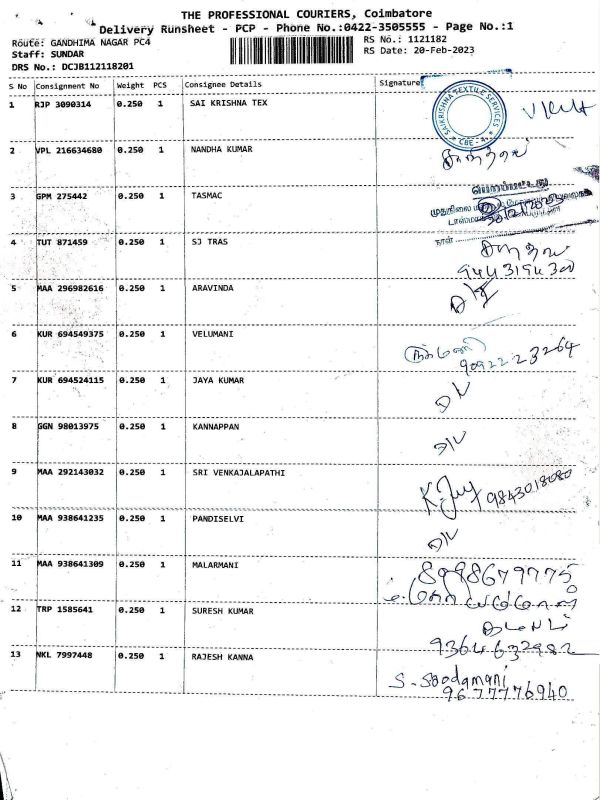 THE PROFESSIONAL COURIERS, Coimbatore
Delivery Runsheet - PCP - Phone No.:0422-3505555 - Page No.:1
Route: GANDHIMA NAGAR PC4
RS No.: 1121182
Staff: SUNDAR
RS Date: 20-Feb-2023
DRS No.: DCJB112118201
S No Consignment No Weight PCS Consignee Details Signature
1 RJP 3090314 0.250 1 SAI KRISHNA TEX
SAIKRISHNA TEXTILE SERVICES CBE - 4.
2 VPL 216634680 0.250 1 NANDHA KUMAR
3 GPM 275442 0.250 1 TASMAC
பெறப்பட்டது
நாள்
4 TUT 871459 0.250 1 SJ TRAS
9443194300
5 MAA 296982616 0.250 1 ARAVINDA
6 KUR 694549375 0.250 1 VELUMANI
ருக்மணி
9092223264
7 KUR 694524115 0.250 1 JAYA KUMAR
D/L
8 GGN 98013975 0.250 1 KANNAPPAN
D/L
9 MAA 292143032 0.250 1 SRI VENKAJALAPATHI
9843018080
10 MAA 938641235 0.250 1 PANDISELVI
D/L
11 MAA 938641309 0.250 1 MALARMANI
8998679775
12 TRP 1585641 0.250 1 SURESH KUMAR
9364632982
13 NKL 7997448 0.250 1 RAJESH KANNA
S. Soodamani
9677776940